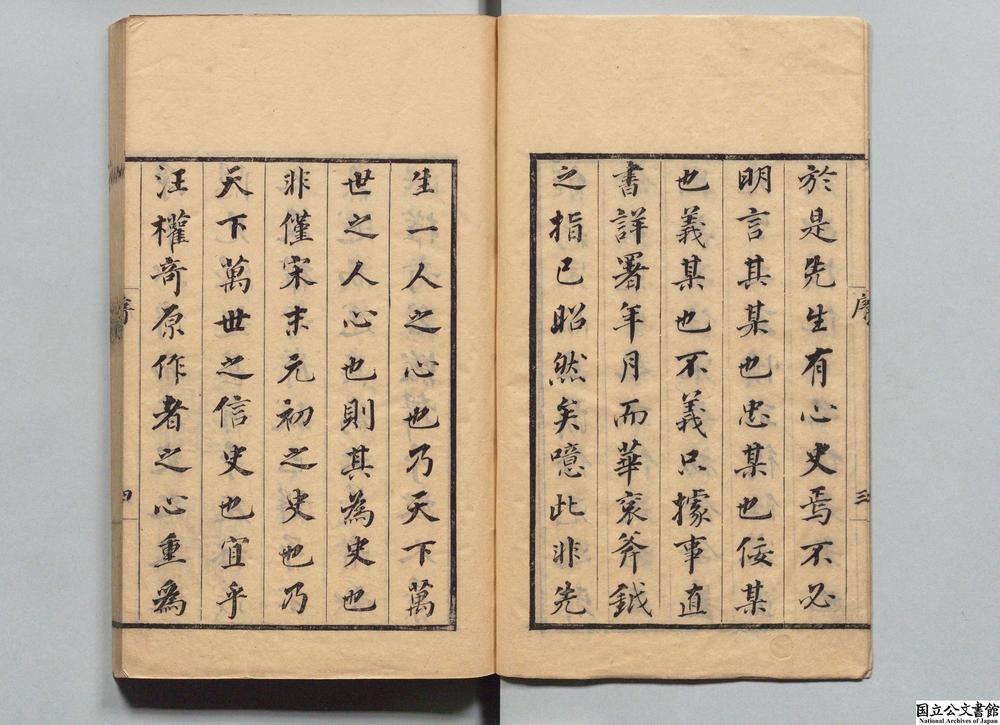 於是先生有心史焉不必
明言其某也忠某也佞某
也義某也不義只據事直
書詳署年月而華衮斧鉞
之指已昭然矣噫此非先
序
三
生一人之心也乃天下萬
世之人心也則其為史也
非僅宋末元初之史也乃
天下萬世之信史也宜乎
汪權奇原作者之心重為
序
四
国立公文書館
National Archives of Japan